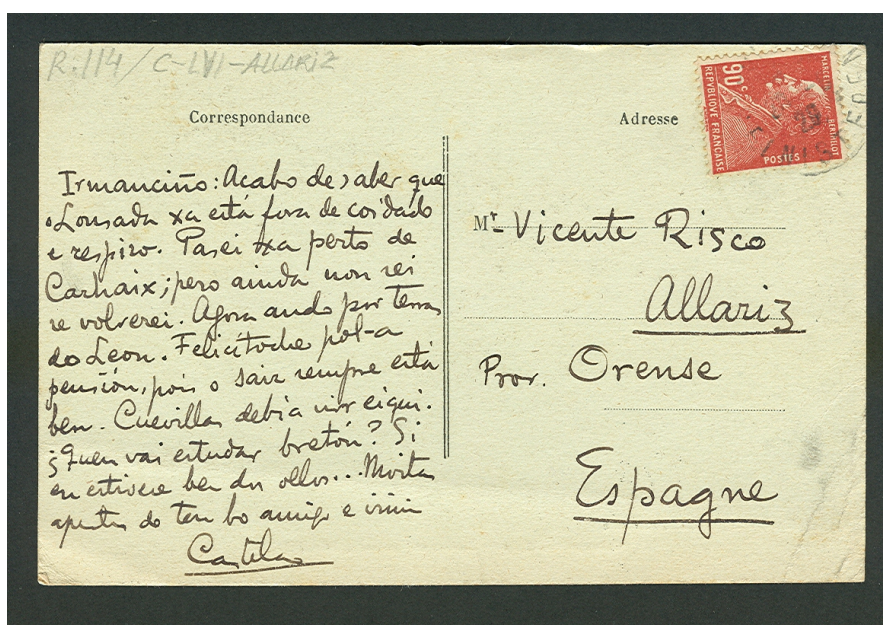 R.114/C-LVI-ALLARIZ
Correspondance
Adresse
90c
MARCELIN BERTHELOT
REPVBLIQVE FRANÇAISE
POSTES
Irmanciño: Acabo de saber que
Lousada xa está fora de coidado
e respiro. Pasei xa perto de
Carhaix; pero ainda non sei
se volverei. Agora ando por terras
do Leon. Felicítoche pol-a
pensión, pois o saír sempre está
ben. Cuevillas debía vir eiqui.
¿Quen vai estudar bretón? Si
eu estivese ben dos ollos... Moitas
apertas do teu bo amigo e irmán
Castelao
Mr Vicente Risco
Allariz
Prov. Orense
Espagne